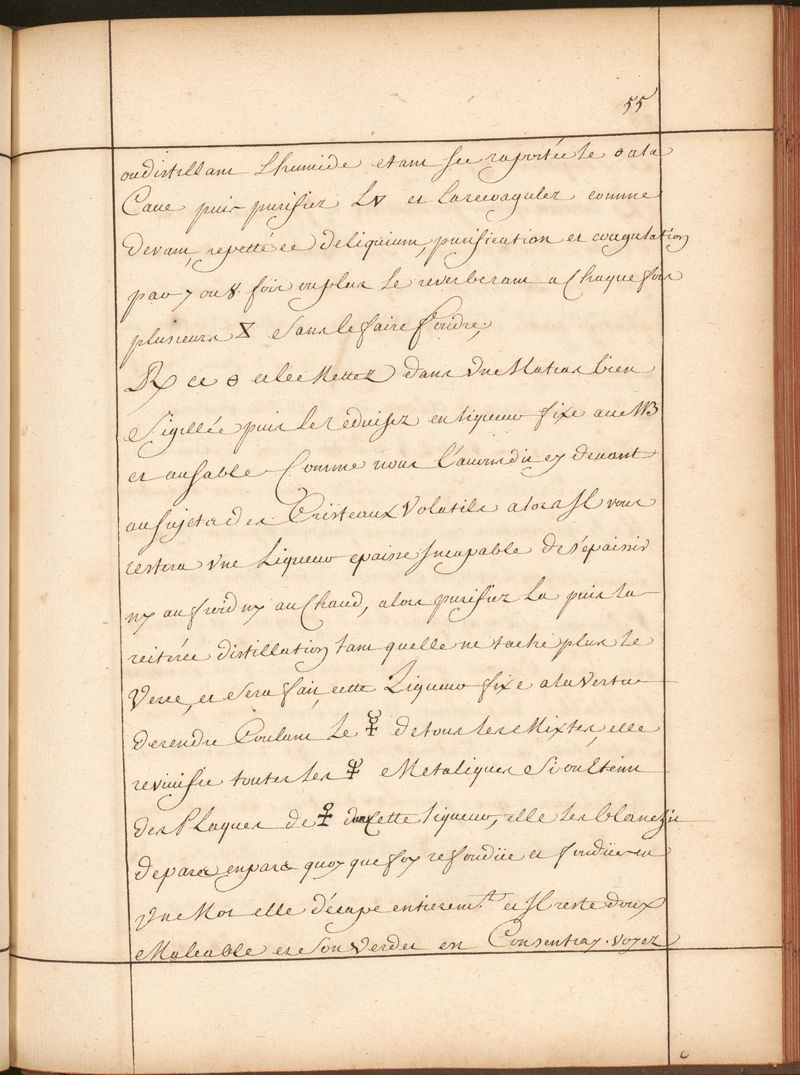 55
ou distillant Lhumide etant sec raportée le 🜔 a la
Cave puis purifiez L🜄 et la recoagulez comme
devant, repetté ce deliquium, purification et coagulation
par 7 ou 8 fois ou plus le reverberant a Chaque fois
plusieurs ⧖ sans le faire fondre;
℞ ce 🜔 et le Mettez dans Vne Matras bien
Sigillée puis le reduisez en liqueur fixe au MB
et au sable Comme nous l'avons dit cy devant
au sujet des Cristeaux Volatils alors Il vous
restera Vne Liqueur epaisse Incapable de s'épaissir
ny au froid ny au Chaud, alors purifiez La puis la
reiterée distillation tant quelle ne tache plus le
Verre, et sera fait, cette Liqueur fixe a la Vertu
de rendre Coulant le ☿ de tous les Mixtes, elle
revivifie toutes les ☿ Metaliques Si on Eteint
des Plaques de ♀ dans Cette liqueur, elle les blanchit
de part en part quoy que soy refondüe et fondüe en
Vn Mot elle décape entierem.t et Il reste doux
Maleable et son Verdet en Consentray. voyez